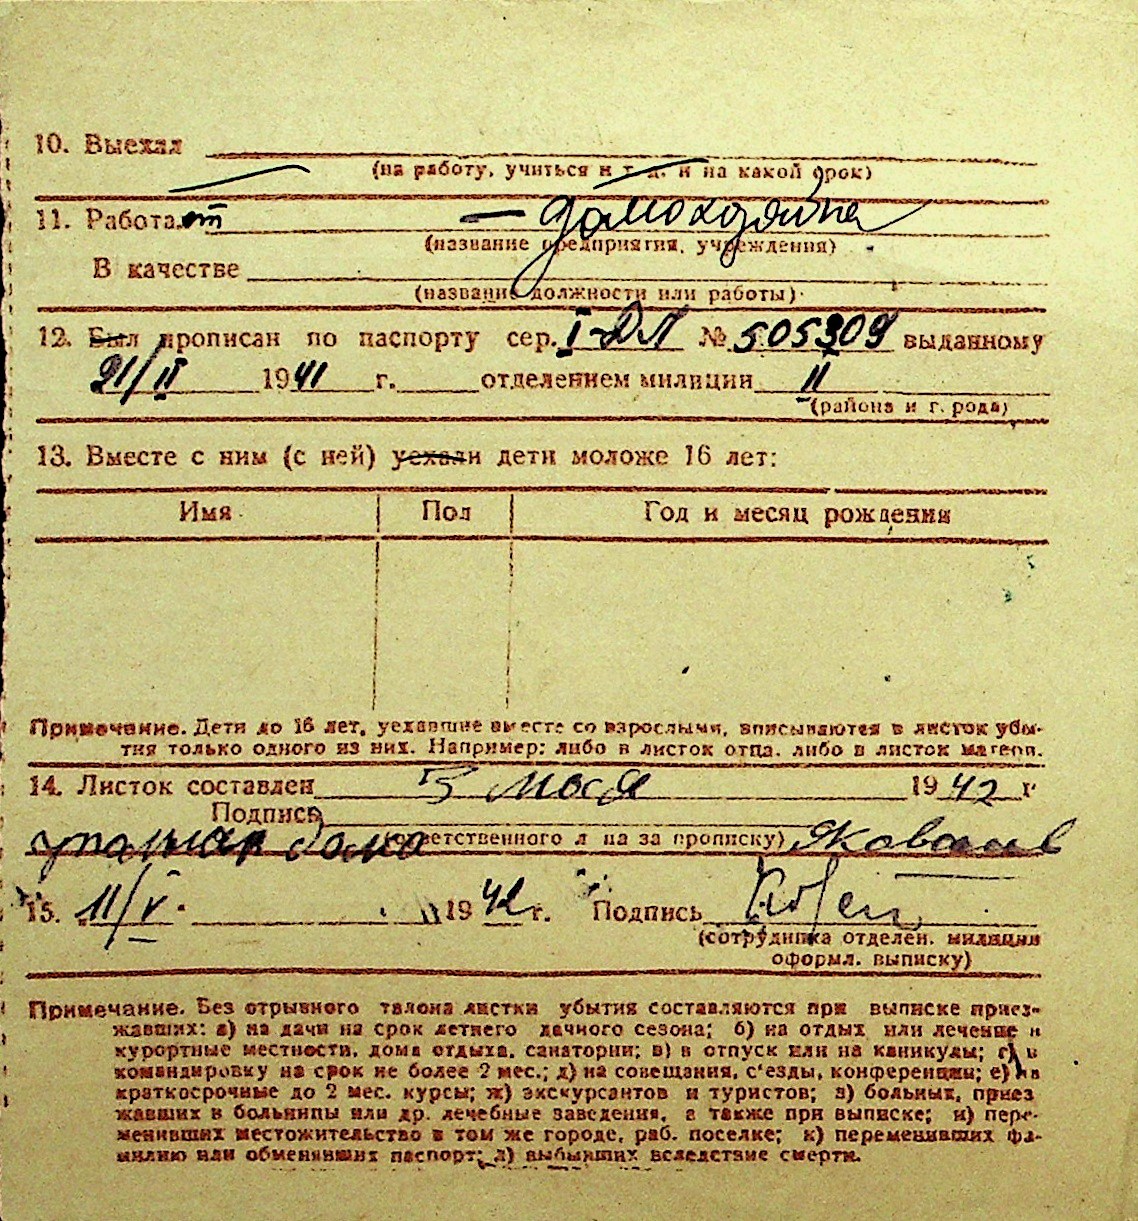 10. Выехал
(на работу, учиться и т. д. и на какой срок)
11. Работает — домохозяйка
(название предприятия, учреждения)
В качестве
(название должности или работы)
12. Был прописан по паспорту сер. I-ДЛ № 505309 выданному
21/II 1941 г. отделением милиции 11
(района и г. рода)
13. Вместе с ним (с ней) уехали дети моложе 16 лет:
Имя Пол Год и месяц рождения
Примечание. Дети до 16 лет, уехавшие вместе со взрослыми, вписываются в листок убы-
тия только одного из них. Например: либо в листок отца, либо в листок матери.
14. Листок составлен 5 мая 1942 г.
Подпись
дома (ответственного л на за прописку)
15. 11/V 1942 г. Подпись
(сотрудника отделен. милиции
оформл. выписку)
Примечание. Без отрывного талона листки убытия составляются при выписке приез-
жавших: а) на дачи на срок летнего дачного сезона; б) на отдых или лечение в
курортные местности, дома отдыха, санатории; в) в отпуск или на каникулы; г) в
командировку на срок не более 2 мес.; д) на совещания, с'езды, конференции; е) на
краткосрочные до 2 мес. курсы; ж) экскурсантов и туристов; з) больных, приез
жавших в больницы или др. лечебные заведения, а также при выписке; и) пере-
менивших местожительство в том же городе, раб. поселке; к) переменивших фа-
милию или обменявших паспорт; л) выбывших вследствие смерти.